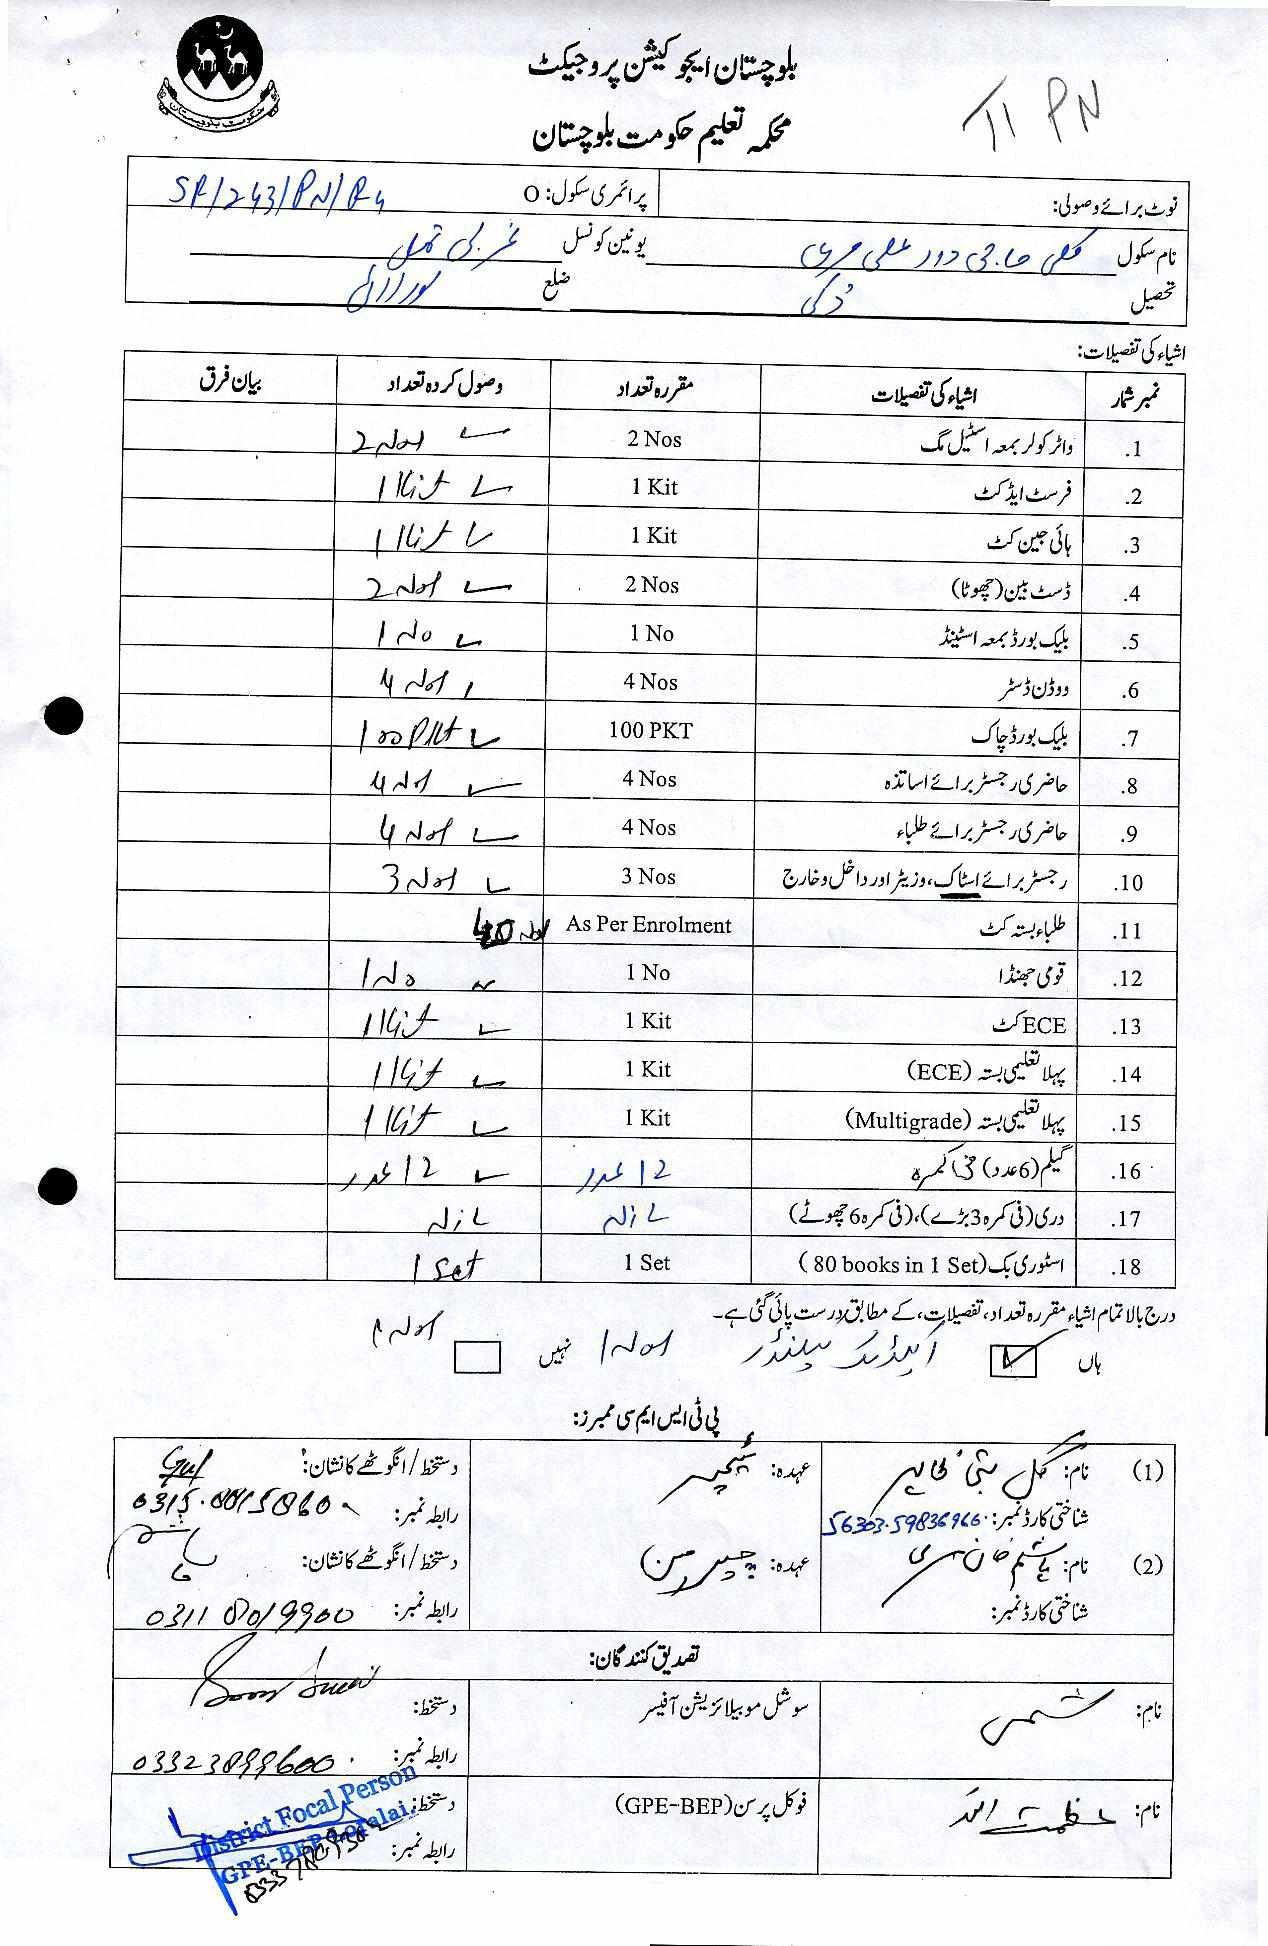 بلوچستان ایجوکیشن پروجیکٹ
محکمہ تعلیم حکومت بلوچستان
TI PN
حکومت بلوچستان
نوٹ برائے وصولی: پرائمری سکول: O SR/243/PN/R4
نام سکول کلی حاجی دور علی مری یونین کونسل غربی تمل
تحصیل دُکی ضلع لورالائی
اشیاء کی تفصیلات:
نمبر شمار اشیاء کی تفصیلات مقررہ تعداد وصول کردہ تعداد بیان فرق
1. واٹر کولر بمعہ اسٹیل مگ 2 Nos 2 Nos
2. فرسٹ ایڈ کٹ 1 Kit 1 Kit
3. ہائی جین کٹ 1 Kit 1 Kit
4. ڈسٹ بین (چھوٹا) 2 Nos 2 Nos
5. بلیک بورڈ بمعہ اسٹینڈ 1 No 1 No
6. ووڈن ڈسٹر 4 Nos 4 Nos
7. بلیک بورڈ چاک 100 PKT 100 PKt
8. حاضری رجسٹر برائے اساتذہ 4 Nos 4 Nos
9. حاضری رجسٹر برائے طلباء 4 Nos 4 Nos
10. رجسٹر برائے اسٹاک، وزیٹر اور داخل و خارج 3 Nos 3 Nos
11. طلباء بستہ کٹ As Per Enrolment Nos
12. قومی جھنڈا 1 No 1 No
13. ECE کٹ 1 Kit 1 Kit
14. پہلا تعلیمی بستہ (ECE) 1 Kit 1 Kit
15. پہلا تعلیمی بستہ (Multigrade) 1 Kit 1 Kit
16. گیلم (6 عدد) فی کمرہ 12 عدد 12 عدد
17. دری (فی کمرہ 3 بڑے)، (فی کمرہ 6 چھوٹے)
18. اسٹوری بک (80 books in 1 Set) 1 Set 1 Set
درج بالا تمام اشیاء مقررہ تعداد، تفصیلات، کے مطابق درست پائی گئی ہے۔
ہاں نہیں
پی ٹی ایس ایم سی ممبرز:
(1) نام: گل عہدہ: ٹیچر دستخط / انگوٹھے کا نشان: Gul
شناختی کارڈ نمبر: رابطہ نمبر:
(2) نام: ہاشم خان مری عہدہ: چیئرمین دستخط / انگوٹھے کا نشان:
شناختی کارڈ نمبر: رابطہ نمبر: 0311 8019900
تصدیق کنندگان:
نام: شمس سوشل موبیلائزیشن آفیسر دستخط:
رابطہ نمبر: 03323899600
نام: عظمت اللہ فوکل پرسن (GPE-BEP) دستخط:
رابطہ نمبر:
District Focal Person
GPE-BEP Loralai